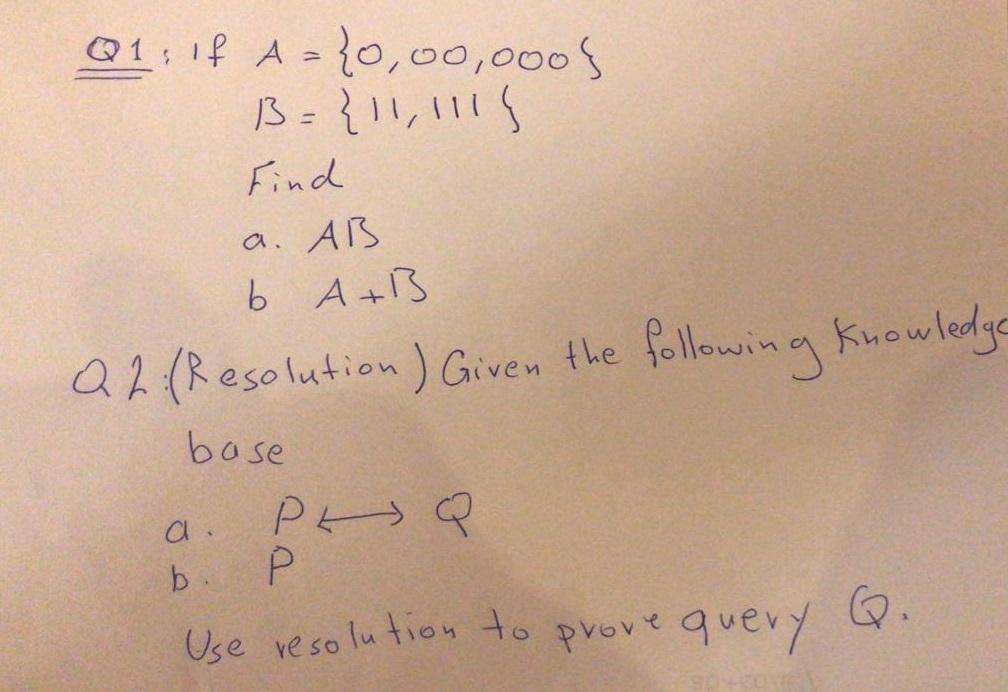 Q1: If A = {0,00,000}
B = {11,111}
Find
a. AB
b A+B
Q2:(Resolution) Given the following Knowledge
base
a. P ⟷ Q
b. P
Use resolution to prove query Q.